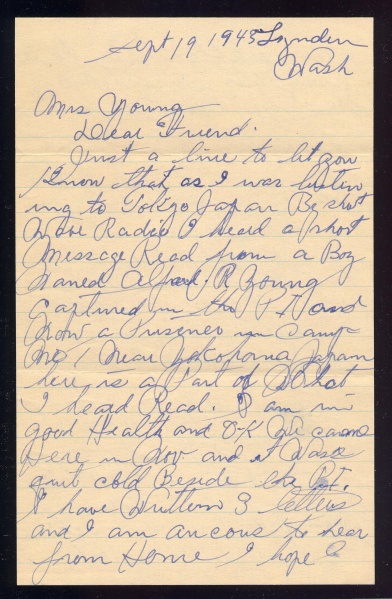 Sept 19 1943 Lynden
Wash
Mrs Young
Dear Friend.
Just a line to let you
know that as I was listen
ing to Tokyo Japan By shot
Wave Radio I heard a short
Message Read from a Boy
Named Alfred R Young
Captured in the P I and
Now a Prisoner in Camp
No 1 Near Yokohoma Japan
here is a Part of What
I heard Read. I am in
good Health and O-K We came
Here in Nov and it was
quit cold Beside the P.I.
I have Written 3 letters
and I am ancous to hear
from Home I hope